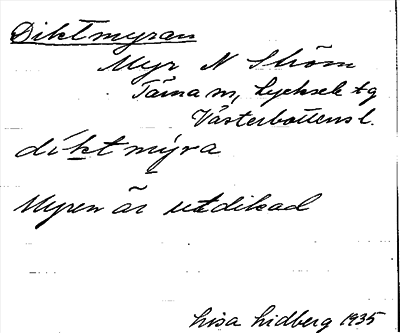 Diktmyran
Myr N Ström
Tärna sn, Lycksele tg
Västerbottens l.
díktmýra
Myren är utdikad
Lisa Lidberg 1935